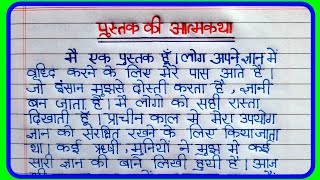 पुस्तक की आत्मकथा
मै एक पुस्तक हूँ। लोग अपने ज्ञान में
वृध्दि करने के लिए मेरे पास आते हैं।
जो इंसान मुझसे दोस्ती करता है, ज्ञानी
बन जाता है। मैं लोगों को सही रास्ता
दिखाती हूँ। प्राचीन काल में मेरा उपयोग
ज्ञान को संरक्षित रखने के लिए किया जाता
था। कई ऋषी, मुनियों ने मुझ में कई
सारी ज्ञान की बाते लिखी हुयी हैं। आज